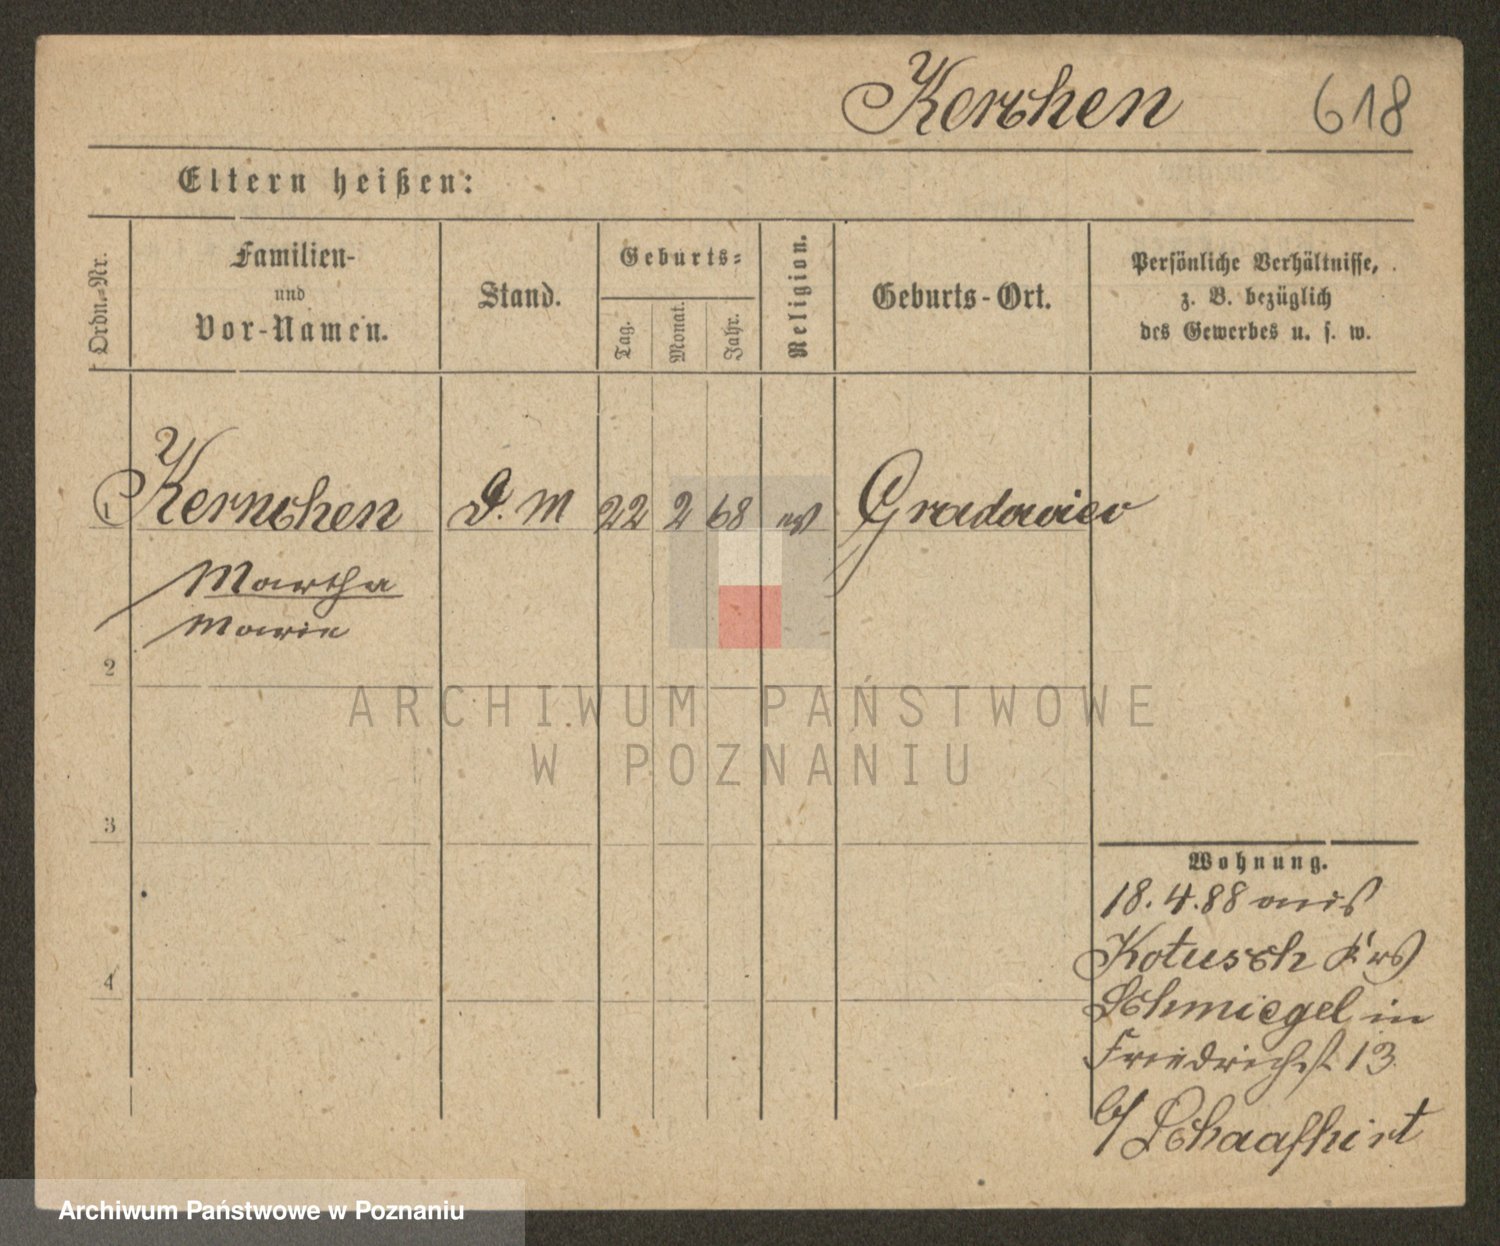 Kerchen 618
Eltern heißen:
Ordn.-Nr.
Familien-
und
Vor-Namen.
Stand.
Geburts-
Tag.
Monat.
Jahr.
Religion.
Geburts-Ort.
Persönliche Verhältnisse,
z. B. bezüglich
des Gewerbes u. s. w.
1 Kernchen D. M 22 2 68 Gradowiev
Martha
Marie
2
3
4
ARCHIWUM PAŃSTWOWE
W POZNANIU
Wohnung.
18.4.88 aus
Kotusch Krs
Schmiegel in
Friedrichst. 13
b/ Schaafhirt
Archiwum Państwowe w Poznaniu